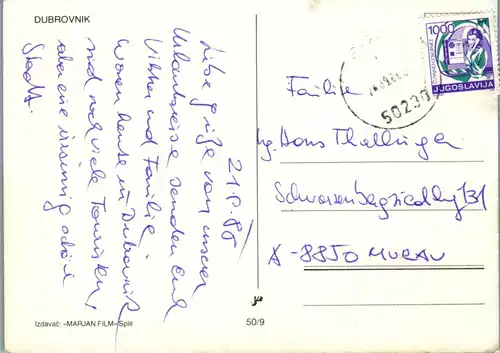 DUBROVNIK
21.9.86
Liebe Grüße von unserer
Urlaubsreise senden Euch
und Familie
Waren heute in Dubrovnik
sind noch viele Touristen,
aber eine schöne
Stadt.
Izdavač: »MARJAN FILM« Split
50/9
1000
JUGOSLAVIJA
50230
Familie
Ing. Hans Thallinger
Schwarzenbergsiedlung 131
A-8850 MURAU